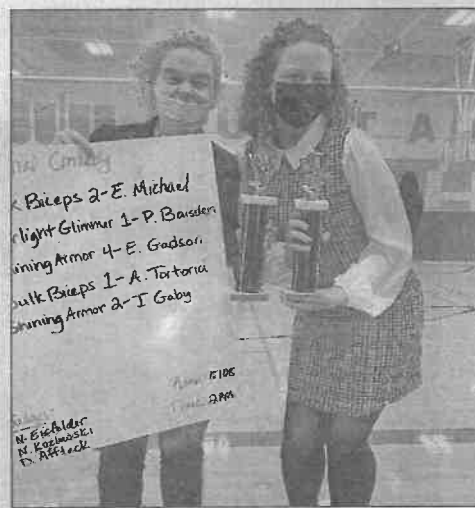 Comedy
Biceps 2-E. Michael
rlight Glimmer 1-P. Baisden
ining Armor 4-E. Gadson
ulk Biceps 1-A. Tortoria
Shining Armor 2-I Gaby
Room: E108
Time: 2PM
N. Eisfelder
N. Kozlowski
D. Affleck